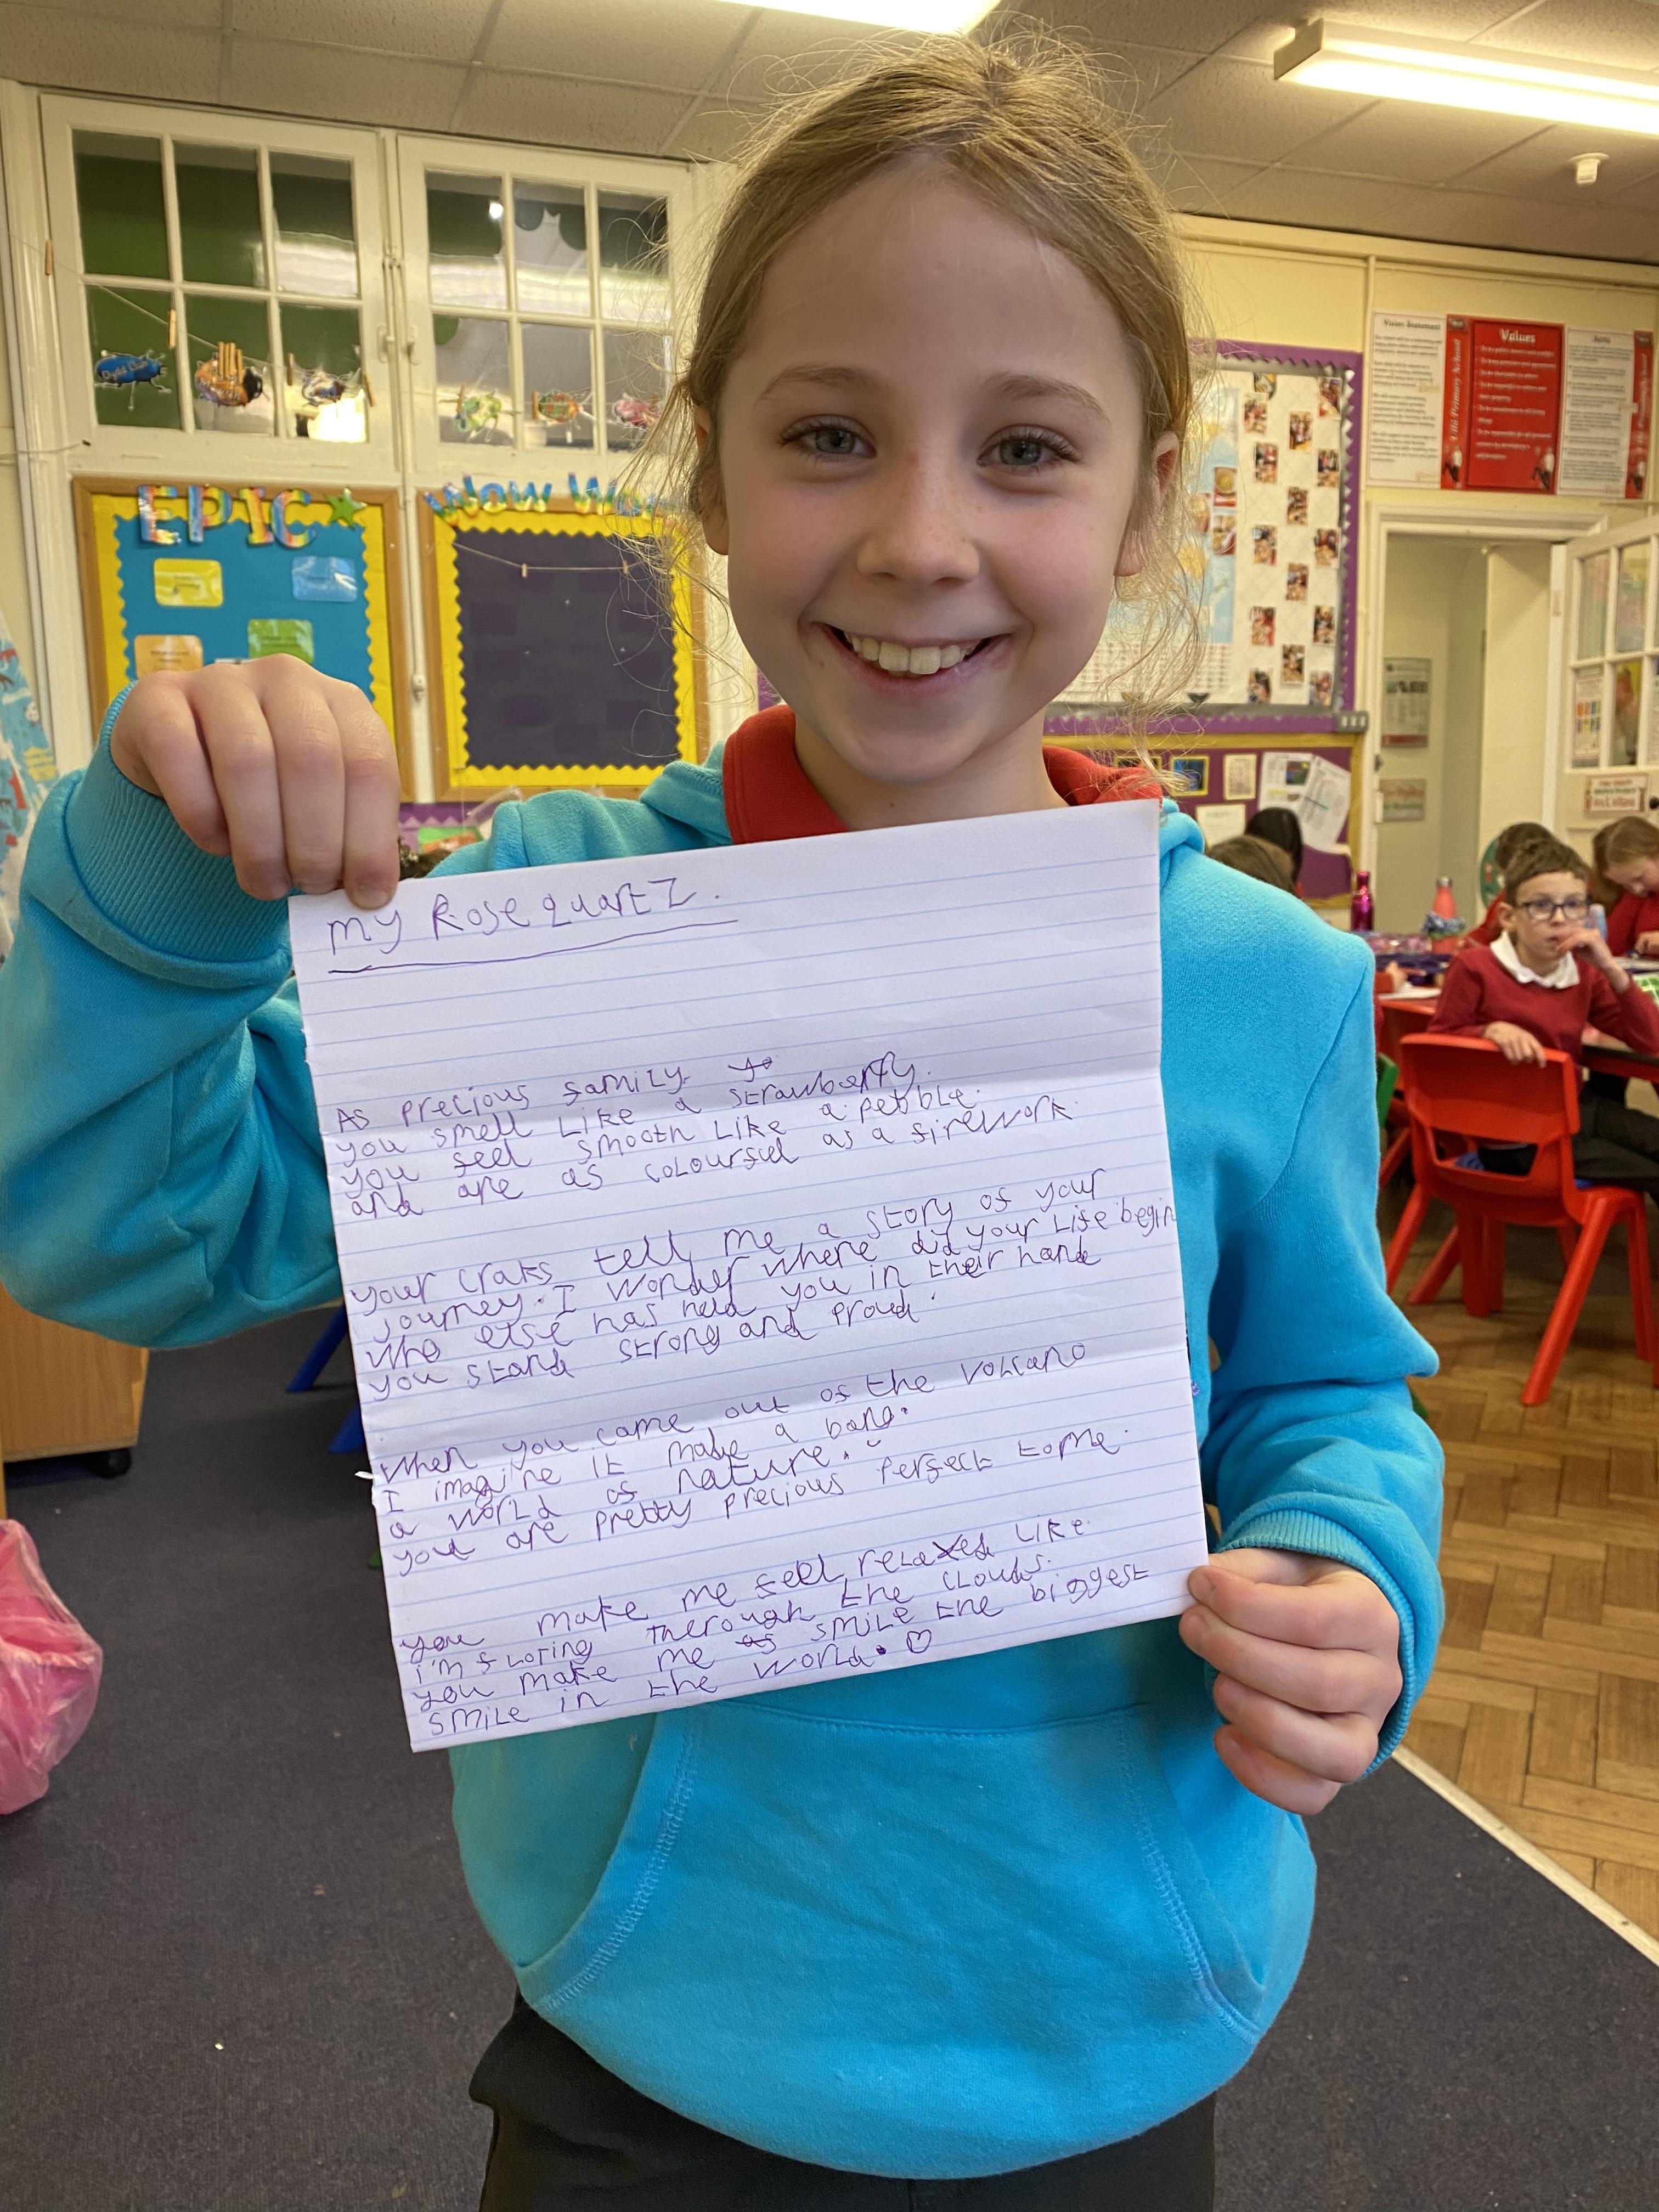 EPIC
Wow Wo
Vision Statement
Values
Aims
my Rose quartz.
As precious family. to
you smell like a strawberry.
you feel smooth like a pebble.
and are as colourful as a firework.
your craks tell me a story of your
journey. I wonder where did your life begin
who else has held you in their hand
you stand strong and proud.
When you came out of the volcano
I imagine it make a bang.
a world of nature.
you are pretty precious perfect to me.
you make me feel relaxed like
i'm floting therough the clouds.
you make me as smile the biggest
smile in the world. ♡